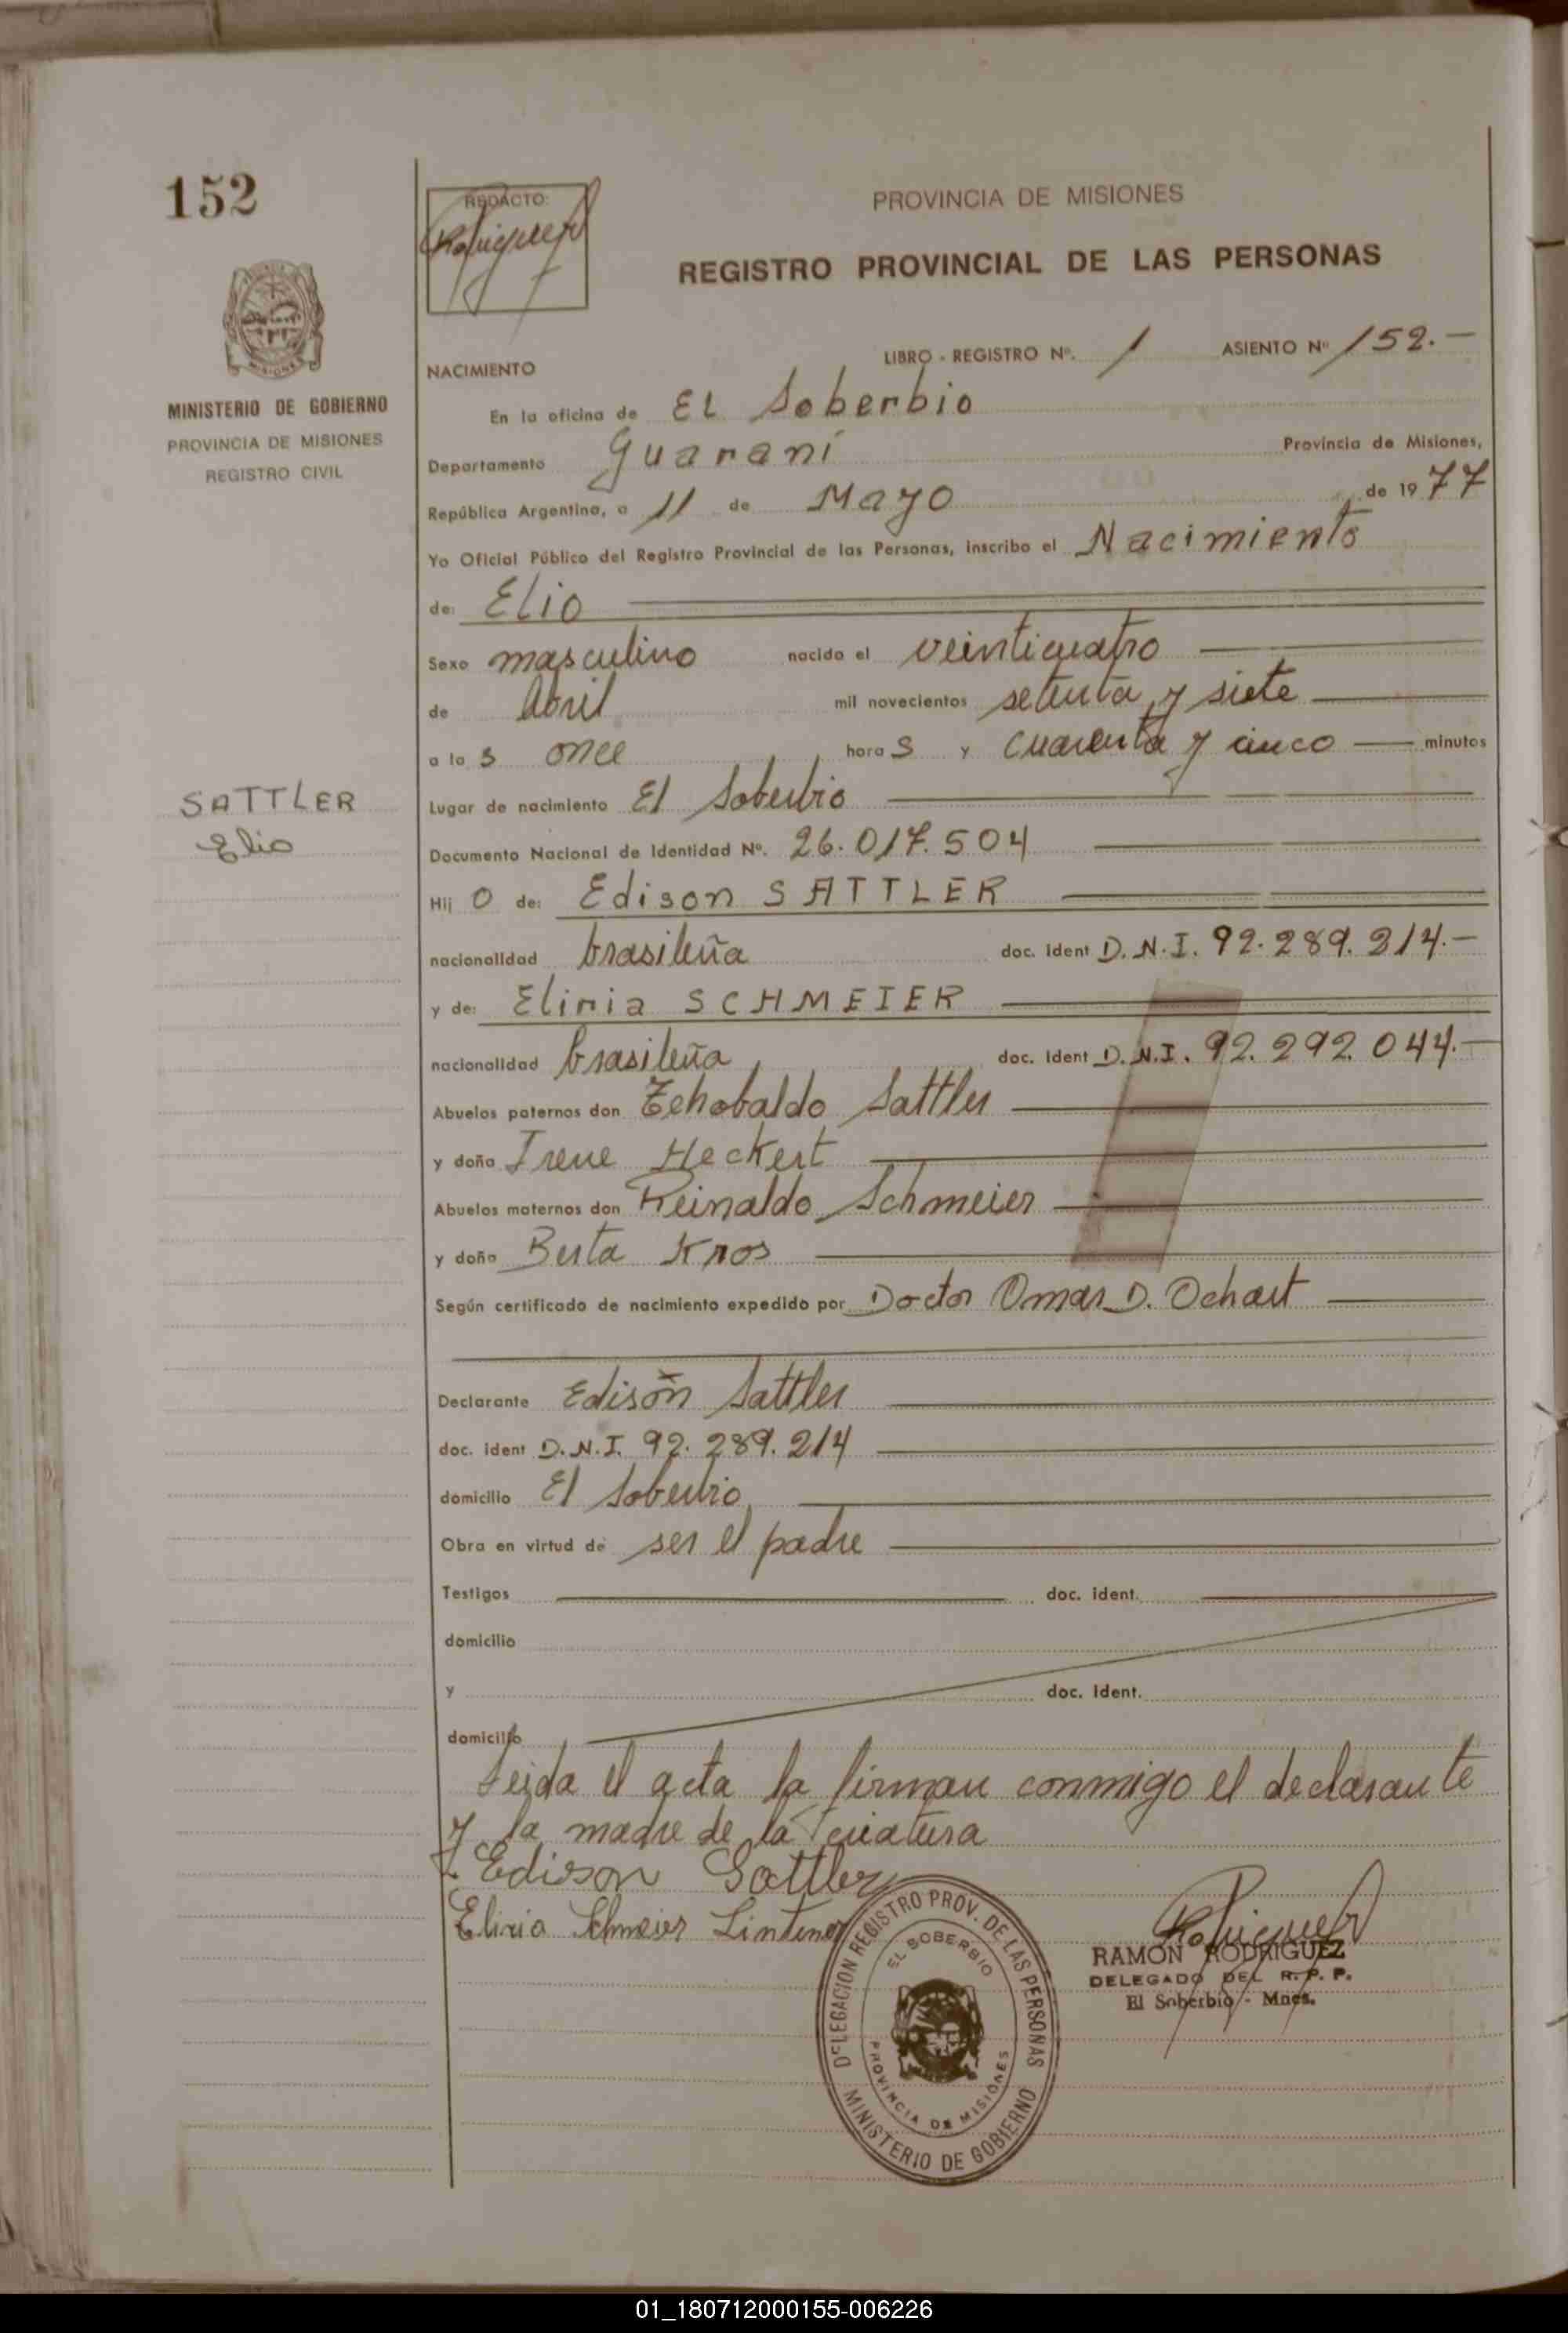 152
REDACTO:
PROVINCIA DE MISIONES
REGISTRO PROVINCIAL DE LAS PERSONAS
MINISTERIO DE GOBIERNO
PROVINCIA DE MISIONES
REGISTRO CIVIL
LIBRO - REGISTRO Nº. 1 ASIENTO Nº 152.-
NACIMIENTO
En la oficina de El Soberbio
Departamento Guaraní Provincia de Misiones,
República Argentina, a 11 de Mayo de 1977
Yo Oficial Público del Registro Provincial de las Personas, inscribo el Nacimiento
de: Elio
Sexo masculino nacido el veinticuatro
de Abril mil novecientos setenta y siete
a las once horas y cuarenta y cinco minutos
SATTLER
Elio
Lugar de nacimiento El Soberbio
Documento Nacional de Identidad Nº. 26.017.504
Hijo de: Edison SATTLER
nacionalidad brasileña doc. ident D.N.I. 92.289.214.-
y de: Eliria SCHMEIER
nacionalidad brasileña doc. ident D.N.I. 92.292.044.-
Abuelos paternos don Tehobaldo Sattler
y doña Irene Heckert
Abuelos maternos don Reinaldo Schmeier
y doña Berta Kros
Según certificado de nacimiento expedido por Doctor Omar D. Ochart
Declarante Edison Sattler
doc. ident D.N.I. 92.289.214
domicilio El Soberbio
Obra en virtud de ser el padre
Testigos doc. ident.
domicilio
y doc. Ident.
domicilio
Leida el acta la firman conmigo el declarante
y la madre de la criatura
Edison Sattler
Eliria Schmeier
DELEGACION REGISTRO PROV. DE LAS PERSONAS
EL SOBERBIO
PROVINCIA DE MISIONES
MINISTERIO DE GOBIERNO
RAMON RODRIGUEZ
DELEGADO DEL R. P. P.
El Soberbio - Mnes.
01_180712000155-006226